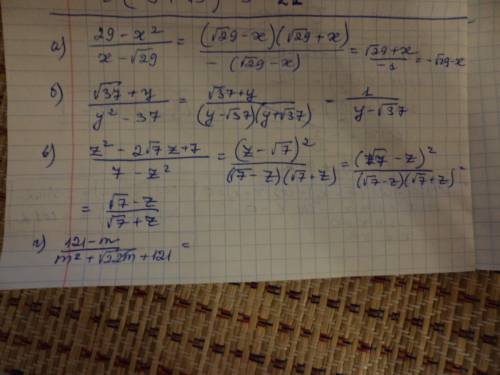 а) (29 - x²)/(x - √29) = ((√29 - x)(√29 + x))/(-(√29 - x)) = (√29 + x)/(-1) = -√29 - x
б) (√37 + y)/(y² - 37) = (√37 + y)/((y - √37)(y + √37)) = 1/(y - √37)
в) (z² - 2√7 z + 7)/(7 - z²) = (z - √7)²/((√7 - z)(√7 + z)) = (√7 - z)²/((√7 - z)(√7 + z)) =
= (√7 - z)/(√7 + z)
г) (121 - m)/(m² + √22m + 121) =